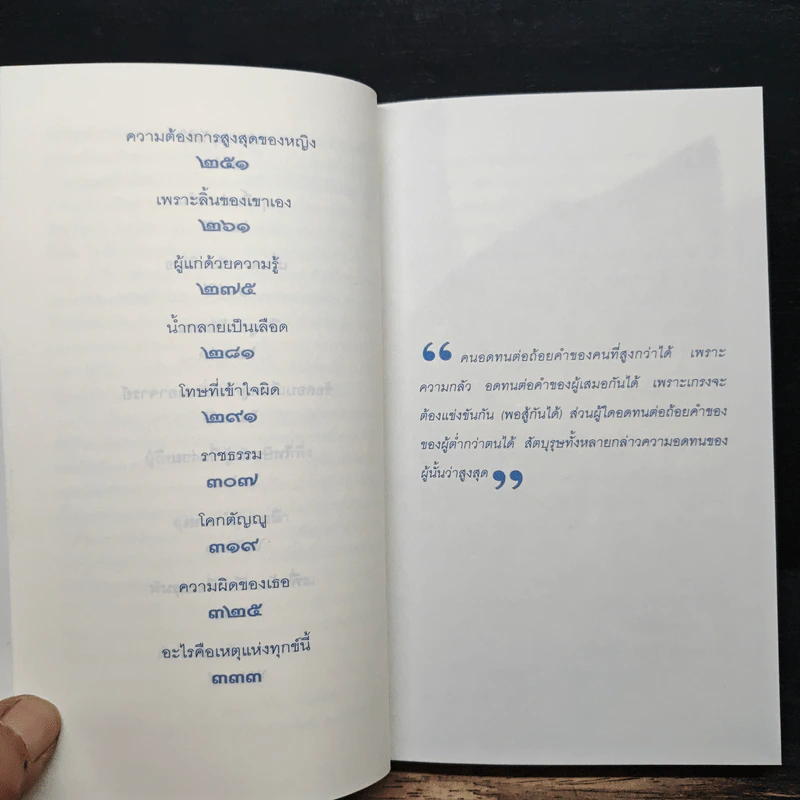 ความต้องการสูงสุดของหญิง
๒๕๑
เพราะลิ้นของเขาเอง
๒๖๑
ผู้แก่ด้วยความรู้
๒๗๕
น้ำกลายเป็นเลือด
๒๘๑
โทษที่เข้าใจผิด
๒๙๑
ราชธรรม
๓๐๗
โคกตัญญู
๓๑๙
ความผิดของเธอ
๓๒๕
อะไรคือเหตุแห่งทุกข์นี้
๓๓๓
“ คนอดทนต่อถ้อยคำของคนที่สูงกว่าได้ เพราะ
ความกลัว อดทนต่อคำของผู้เสมอกันได้ เพราะเกรงจะ
ต้องแข่งขันกัน (พอสู้กันได้) ส่วนผู้ใดอดทนต่อถ้อยคำของ
ของผู้ต่ำกว่าตนได้ สัตบุรุษทั้งหลายกล่าวความอดทนของ
ผู้นั้นว่าสูงสุด ”